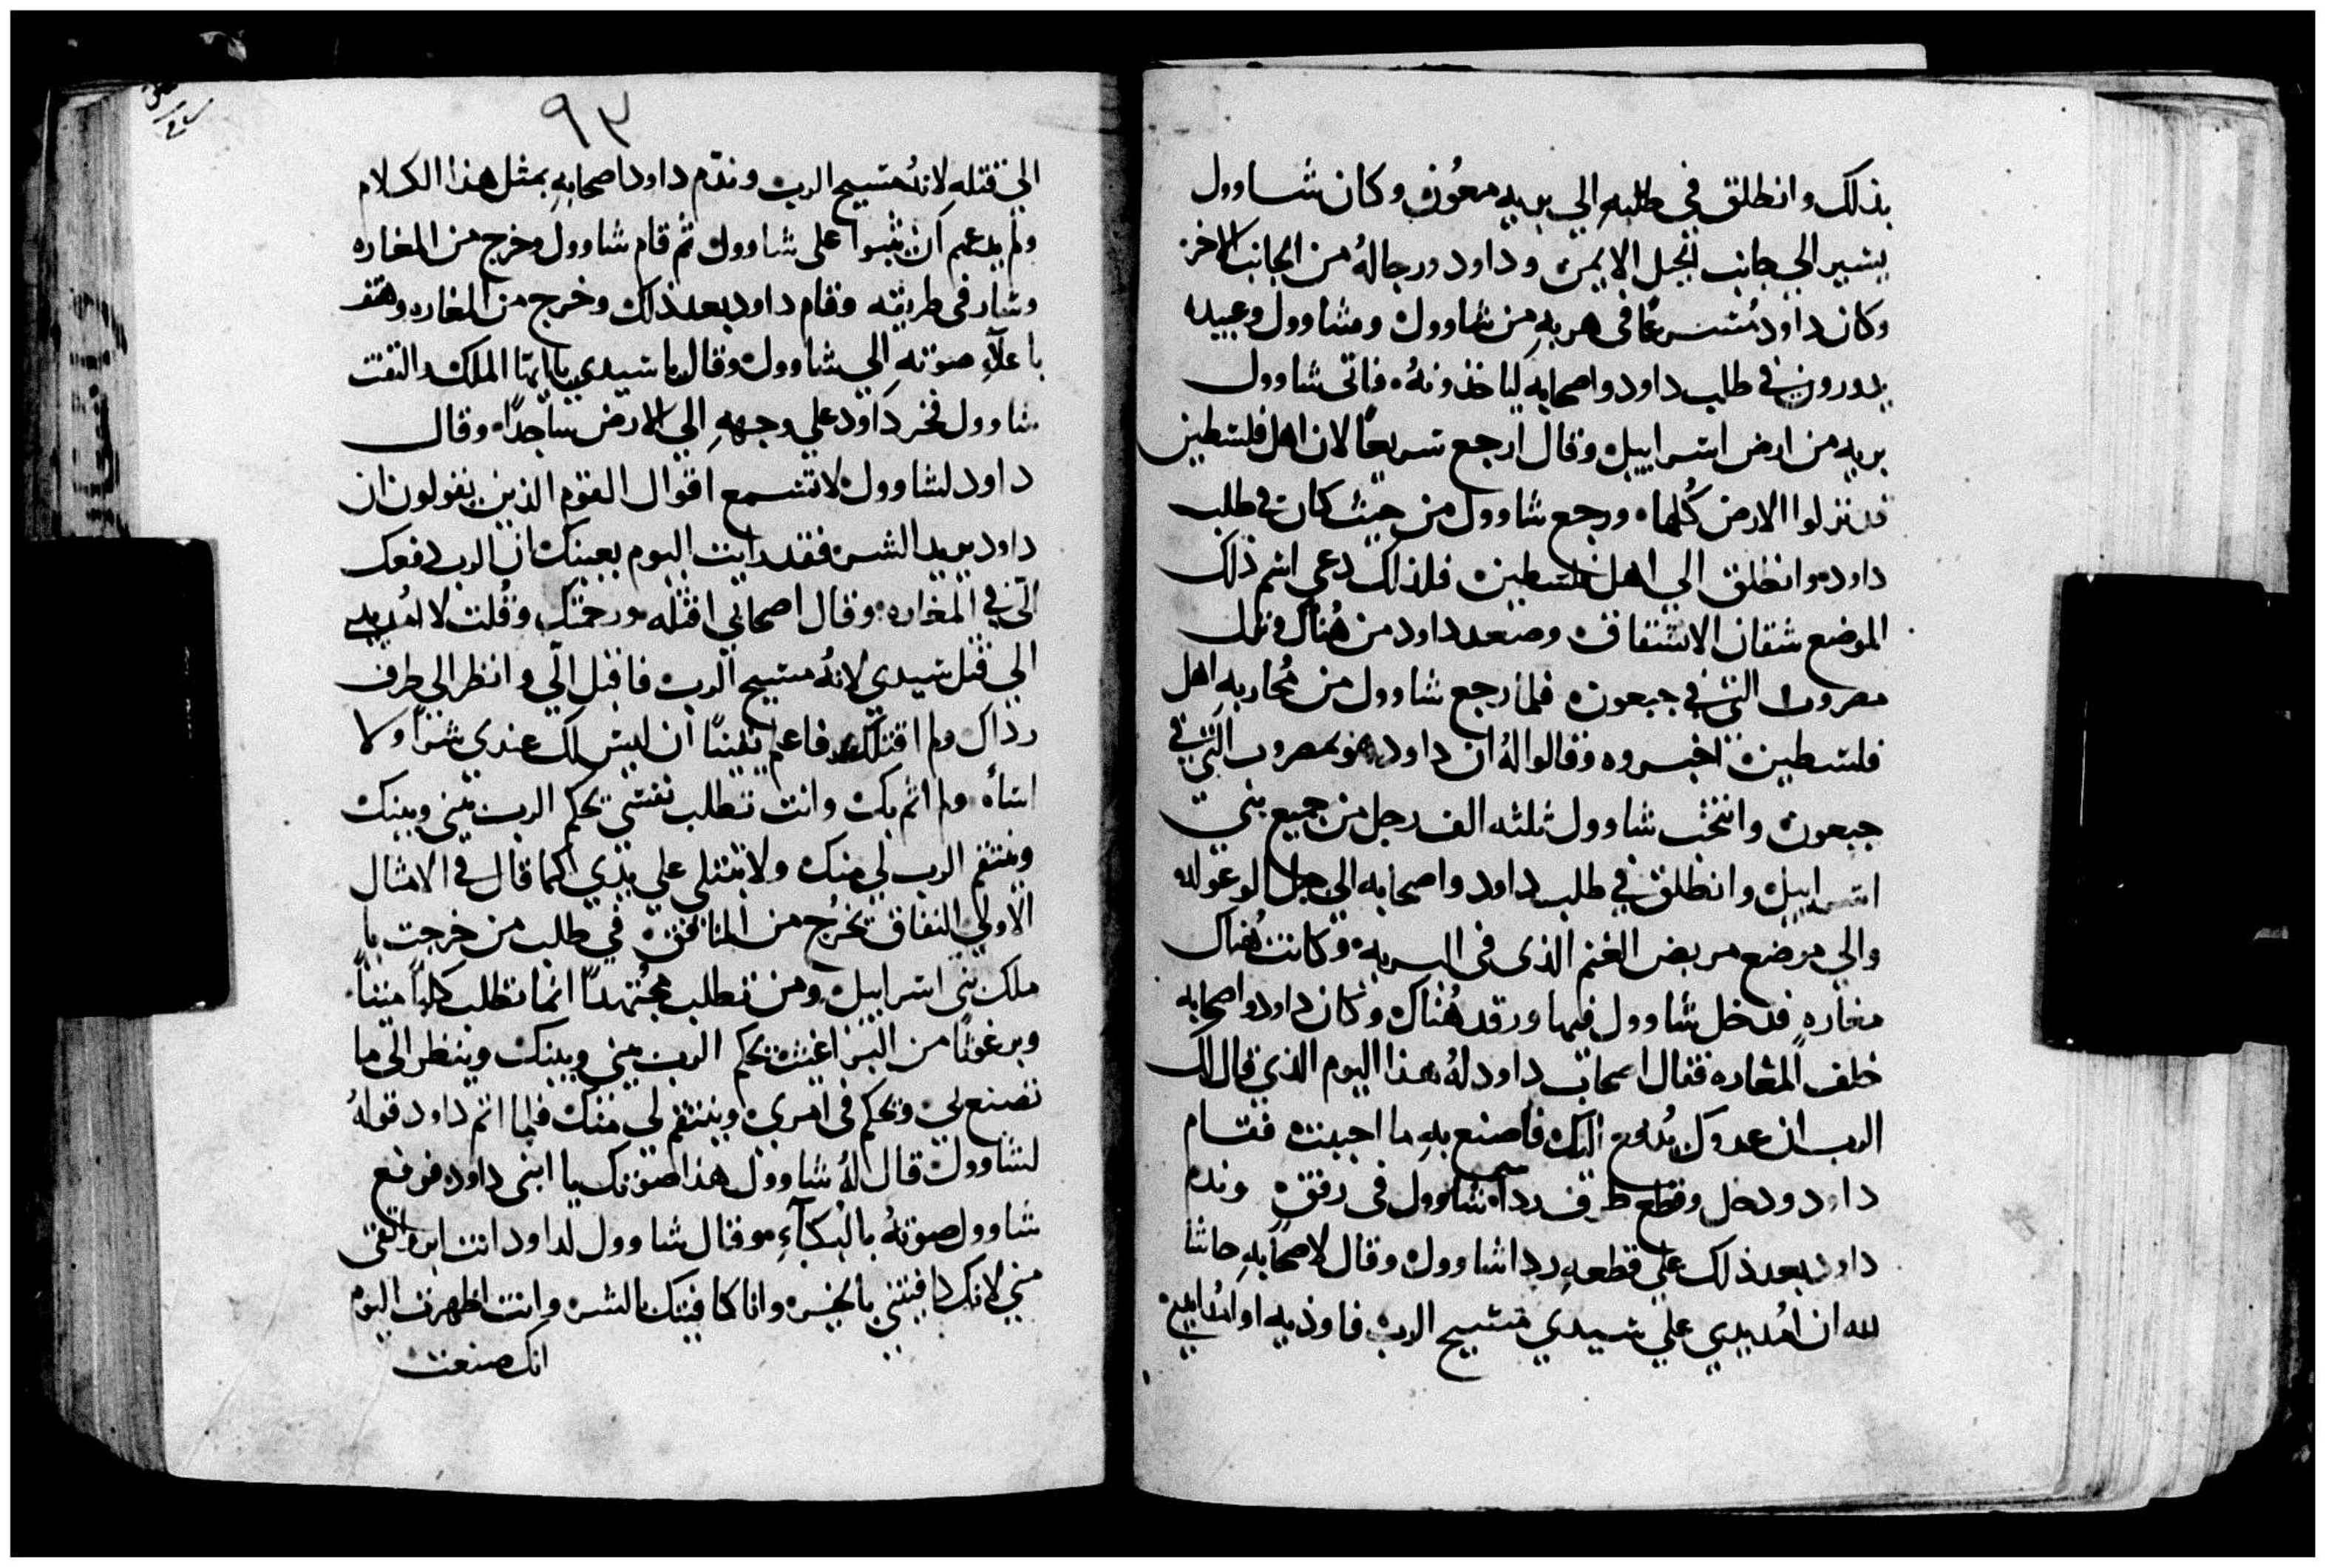 بذلك وانطلق في طلبهِ الي بريه معُون وكان شاوول
يسير الي جانب الجبل الايمن وداود ورجالهُ من الجانب الاخر
وكان داود مُسرعًا في هربهِ من شاوول وشاوول وعبيده
يدورون في طلب داود واصحابه لياخذونهُ فاتي شاوول
بريه من ارض اسراييل وقال ارجع سريعًا لان اهل فلسطين
قد نزلوا الارض كُلها ورجع شاوول من حيث كان في طلب
داود وانطلق الي اهل فلسطين فلذلك دعي اسم ذلك
الموضع شقان الانشقاق وصعد داود من هُناك ونزل
مصروب التي في جبعون فلما رجع شاوول من مُحاربه اهل
فلسطين اخبروه وقالوا لهُ ان داود هو بمصروب التي في
جبعون وانتخب شاوول ثلثه الف رجل من جميع بني
اسراييل وانطلق في طلب داود واصحابه الي جبل الوعوله
والي موضع مربض الغنم الذي في البريه وكانت هُناك
مغاره فدخل شاوول فيها ورقد هُناك وكان داود واصحابه
خلف المغاره فقال اصحاب داود لهُ هذا اليوم الذي قال لك
الرب ان عدوك يُدفع اليك فاصنع بهِ ما احببت فقام
داود ودخل وقطع طرف رداء شاوول في رفق وندم
داود بعد ذلك علي قطعهِ ردا شاوول وقال لاصحابهِ حاشا
لله ان امُد يدي علي سيدي مسيح الرب فاوذيه او امُد يدي
٩٣
الي قتلهِ لانهُ مسيح الرب وندّم داود اصحابهِ بمثل هذا الكلام
ولم يدعهم ان يثبوا علي شاوول ثم قام شاوول وخرج من المغاره
وسار في طريقه وقام داود بعد ذلك وخرج من المغاره وهتف
باعلاءِ صوتهِ الي شاوول وقال يا سيدي يا ايها الملك والتفت
شاوول فخر داود علي وجههِ الي الارض ساجدًا وقال
داود لشاوول لا تسمع اقوال القوم الذين يقولون ان
داود يريد الشر فقد رايت اليوم بعينك ان الرب دفعك
اليّ في المغاره وقال اصحابي اقتله ورحمتك وقُلت لا امُد يدي
الي قتل سيدي لانهُ مسيح الرب فاقبل اليّ وانظر الي طرف
رداك ولم اقتلك فاعلم يقينًا ان ليس لك عندي شرًا ولا
اساه ولم اثم بك وانت تطلب نفسي يحكم الرب بيني وبينك
وينتقم الرب لي منك ولا تبتلي علي يدي كما قال في الامثال
الاولي النفاق يخرُج من المنافق في طلب من خرجت يا
ملك بني اسراييل ومن تطلب مجُتهدًا انما تطلب كلبًا ميتًا
وبرغوثًا من البراغيث يحكم الرب بيني وبينك وينظر الي ما
تصنع لي ويحكم في امري وينتقم لي منك فلما اتم داود قولهُ
لشاوول قال لهُ شاوول هذا صوتك يا ابني داود فرفع
شاوول صوتهُ بالبكاءِ وقال شاوول لداود انت ابر واتقي
مني لانك كافيتني بالخير وانا كافيتك بالشر وانت اظهرت اليوم
انك صنعت